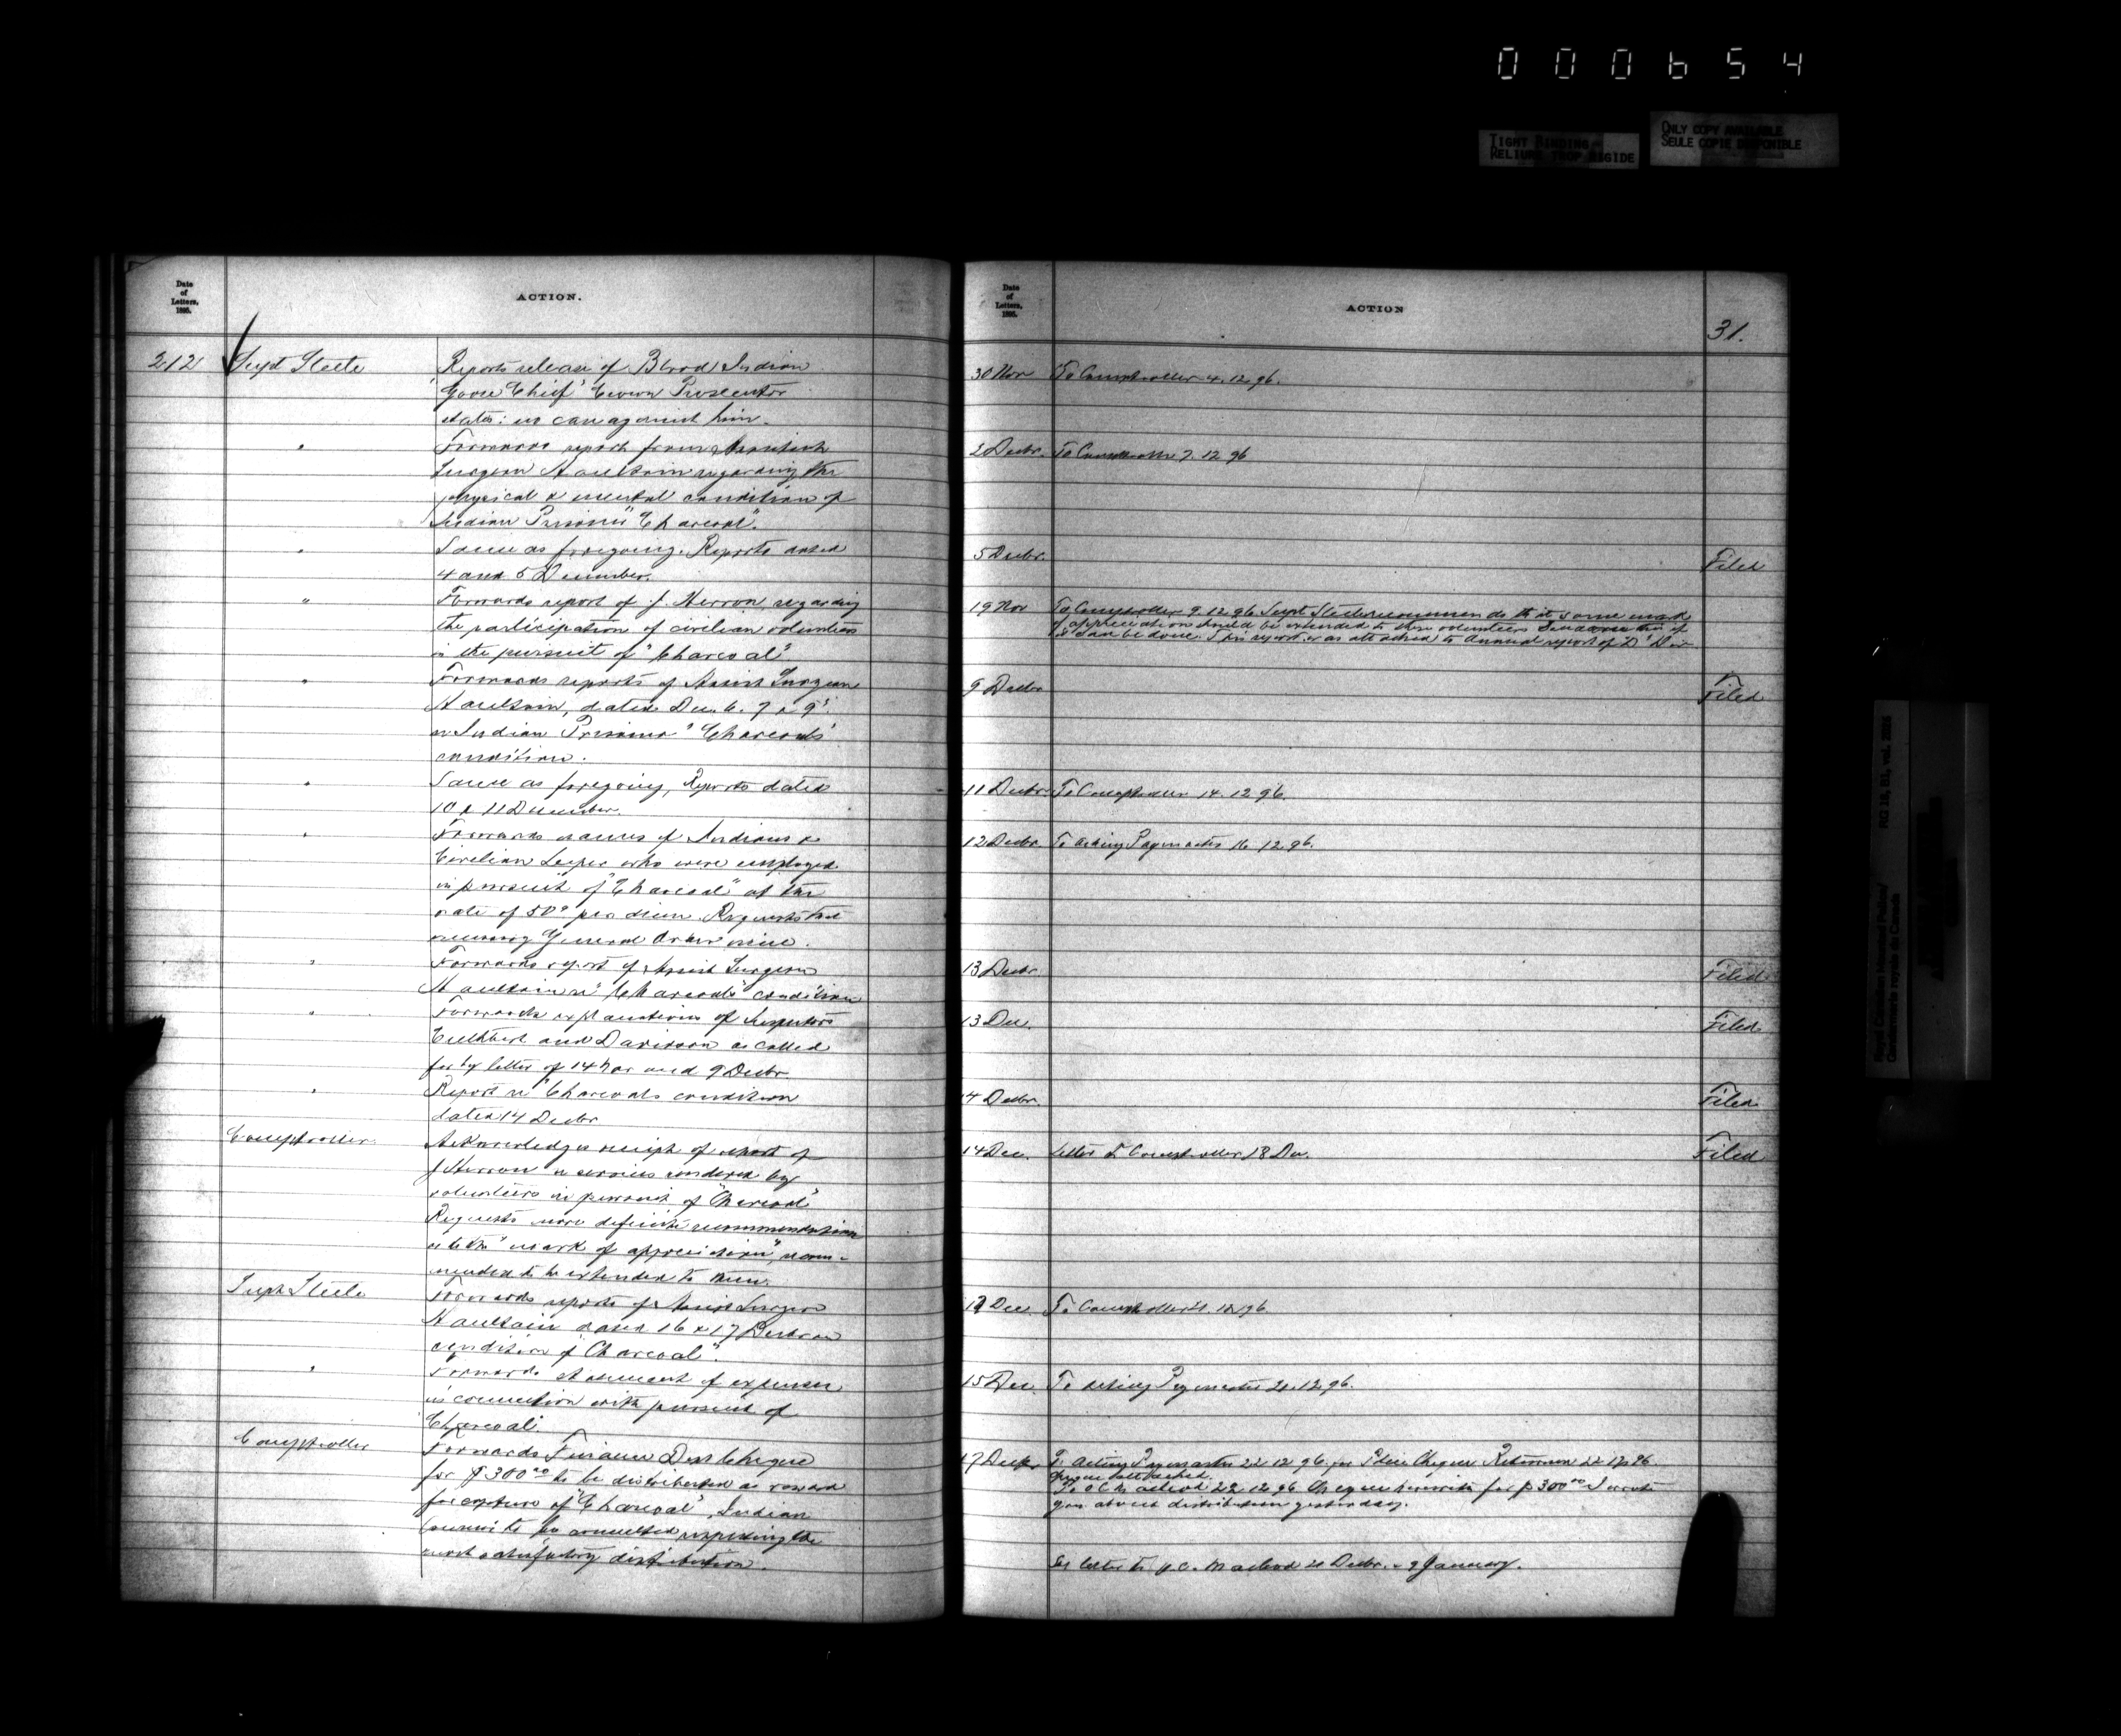 000654
TIGHT BINDING
RELIURE TROP RIGIDE
ONLY COPY AVAILABLE
SEULE COPIE DISPONIBLE
Date
of
Letters.
1895.
ACTION.
212
Supt Steele
Reports release of Blood Indian
"Goose Chief" Crown Prosecutor
states: no case against him.
"
Forwards report from Assistant
Surgeon Haultain regarding the
physical & mental condition of
Indian Prisoner "Charcoal".
"
Same as foregoing. Reports dated
4 and 5 December.
"
Forwards report of J. Herron regarding
the participation of civilian volunteers
in the pursuit of "Charcoal"
"
Forwards reports of Assist Surgeon
Haultain, dated Dec. 6. 7 & 9
on Indian Prisoner "Charcoals"
condition.
"
Same as foregoing, Reports dated
10 & 11 December.
"
Forwards names of Indians &
Civilian who were employed
in pursuit of "Charcoal" at the
rate of 50c per diem. Requests that
necessary General Order
"
Forwards report of Assist Surgeon
Haultain re "Charcoals" condition
"
Forwards explanations of Inspectors
Cuthbert and Davidson as called
for by letter of 14 Nov and 9 Decbr
"
Report re "Charcoals condition
dated 14 Decbr
Comptroller
Acknowledges receipt of report of
J Herron re services rendered by
volunteers in pursuit of "Charcoal"
Requests more definite recommendation
as to the "mark of appreciation", recom-
mended to be extended to them.
Supt Steele
Forwards reports of Assist Surgeon
Haultain dated 16 & 17 Decbr on
condition of "Charcoal".
"
Forwards statement of expenses
in connection with pursuit of
Charcoal.
Comptroller
Forwards Finance Dept Cheque
for $300.00 to be distributed as reward
for capture of "Charcoal", Indian
to be consulted regarding the
most satisfactory distribution.
Date
of
Letters.
1895.
ACTION
31.
30 Nov To Comptroller 4.12.96.
2 Decbr. To Comptroller 7.12.96
5 Decbr. Filed
19 Nov To Comptroller 9.12.96. Supt Steele recommends that some mark
of appreciation should be extended to these volunteers if
it can be done. This report was attached to Annual report of "D" Div
9 Decbr Filed
11 Decbr. To Comptroller 14.12.96.
12 Decbr. To Acting Paymaster 16.12.96.
13 Decbr Filed.
13 Dec. Filed.
14 Decbr. Filed.
14 Dec. Letter to Comptroller 18 Dec. Filed
17 Dec To Comptroller 21.12.96.
15 Dec. To Acting Paymaster 21.12.96.
17 Decbr To Acting Paymaster 22.12.96 for Cheque Returned 22.12.96.
Cheque attached.
To O C Macleod 22.12.96 Cheque herewith for $300.00 I wrote
you about distribution yesterday.
See letter to O.C. Macleod 21 Decbr. - 9 January.
Royal Canadian Mounted Police/
Gendarmerie royale du Canada
RG 18, B1, vol.